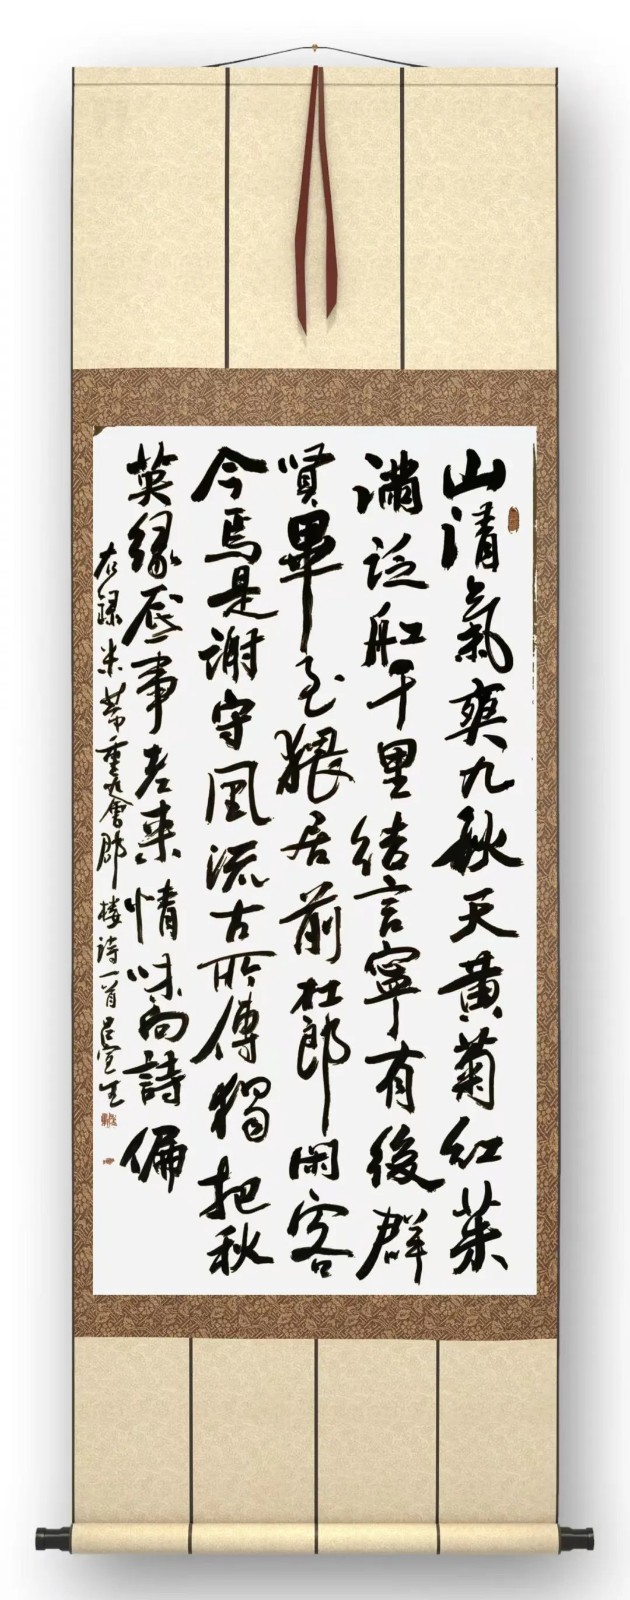 山清氣爽九秋天黄菊紅茱
滿泛舡千里結言寧有後群
賢畢至猥居前杜郎閑客
今焉是謝守風流古所傳獨把秋
英緣底事老来情味向詩偏
右録米芾重九會郡楼詩一首